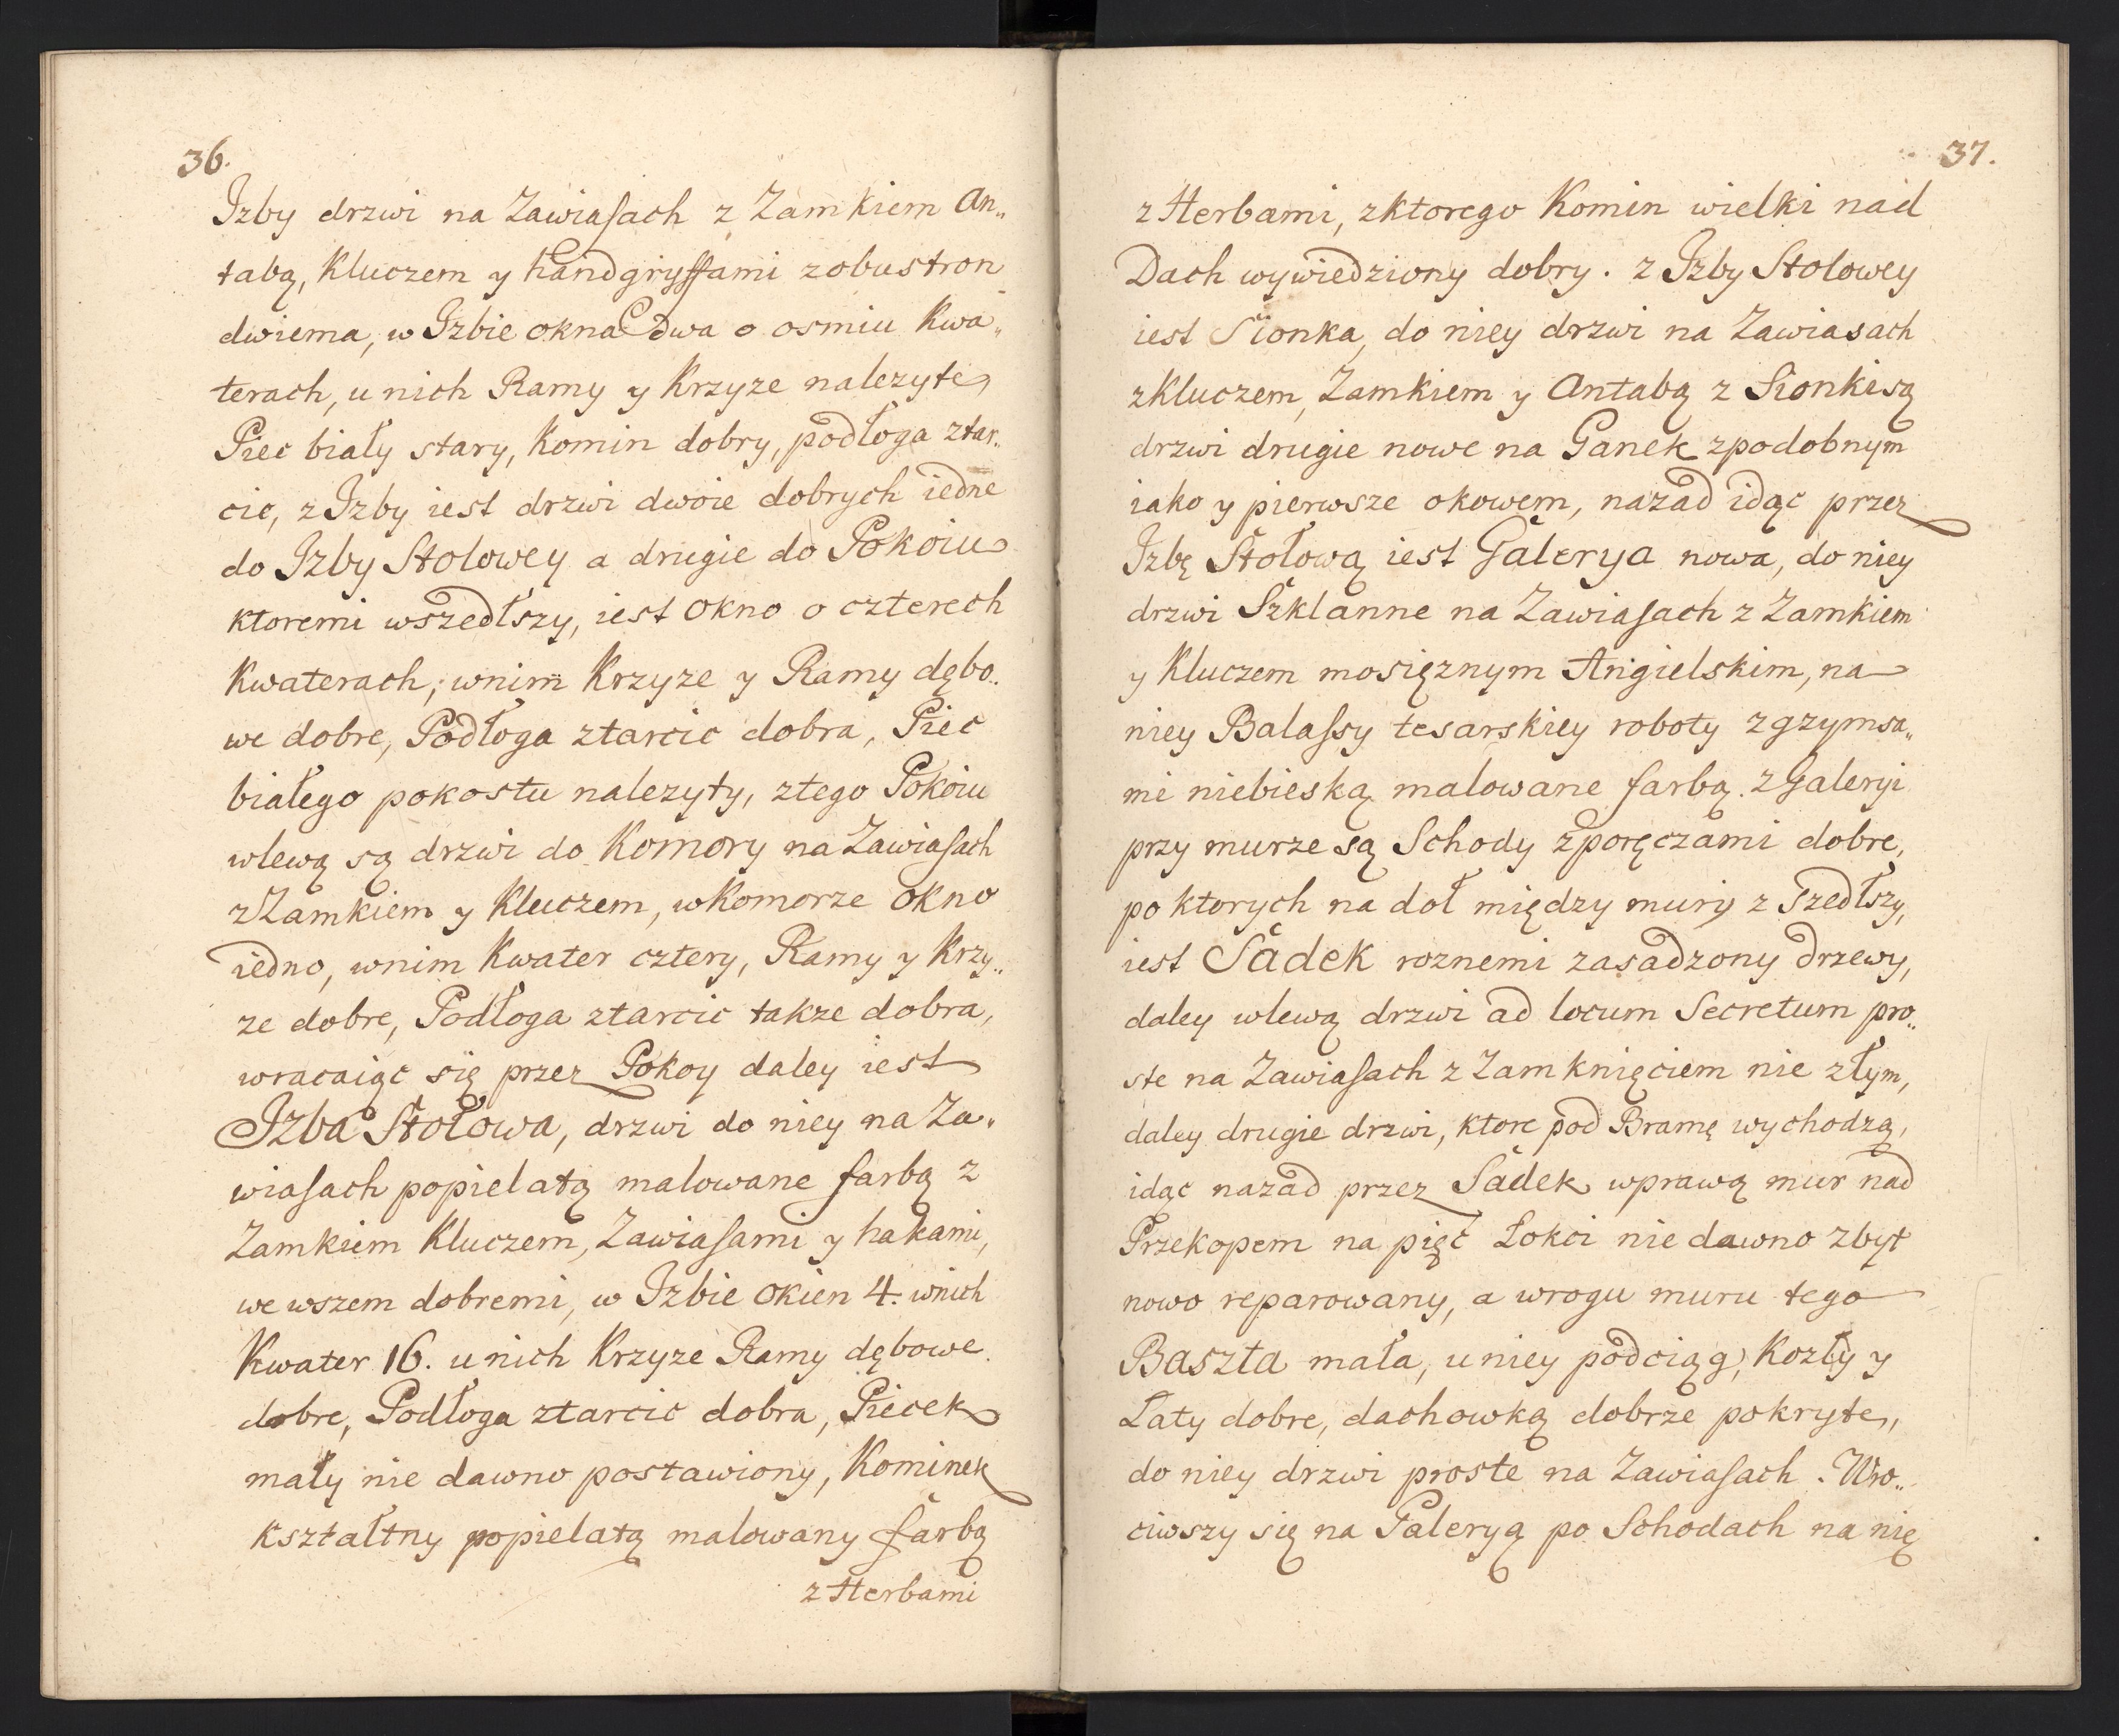 36.
Izby drzwi na Zawiasach z Zamkiem An„
tabą, Kluczem y handgryffami zobustron
dwiema, w Izbie okna dwa o osmiu Kwa„
terach, u nich Ramy y Krzyze nalezyte,
Piec biały stary, Komin dobry, podłoga ztar„
cic, z Izby iest drzwi dwoie dobrych iedne
do Izby Stolowey a drugie do Pokoiu
ktoremi wszedłszy, iest okno o czterech
Kwaterach, wnim Krzyze y Ramy dębo„
we dobre, Podłoga ztarcic dobra, Piec
białego pokostu nalezyty, ztego Pokoiu
wlewą są drzwi do Komory na Zawiasach
z Zamkiem y Kluczem, w Komorze okno
iedno, wnim Kwater cztery, Ramy y Krzy„
ze dobre, Podłoga ztarcic takze dobra,
wracaiąc się przez Pokoy daley iest
Izba Stołowa, drzwi do niey na Za„
wiasach popielatą malowane farbą z
Zamkiem Kluczem, Zawiasami y hakami,
we wszem dobremi, w Izbie okien 4. wnich
Kwater 16. u nich Krzyze Ramy dębowe
dobre, Podłoga ztarcic dobra, Piecek
mały nie dawno postawiony, Kominek
kształtny popielatą malowany farbą
z Herbami
37.
z Herbami, zktorego Komin wielki nad
Dach wywiedziony dobry. z Izby Stolowey
iest Sionka, do niey drzwi na Zawiasach
z Kluczem, Zamkiem y Antabą z Sionki są
drzwi drugie nowe na Ganek zpodobnym
iako y pierwsze okowem, nazad idąc przez
Izbę Stołową iest Galerya nowa, do niey
drzwi Szklanne na Zawiasach z Zamkiem
y Kluczem mosięznym Angielskim, na
niey Balassy tesarskiey roboty zgzymsa„
mi niebieską malowane farbą. z Galeryi
przy murze są Schody zporęczami dobre,
po ktorych na doł między mury z Szedłszy,
iest Sadek roznemi zasadzony drzewy,
daley wlewą drzwi ad locum Secretum pro„
ste na Zawiasach z Zamknięciem nie złym,
daley drugie drzwi, ktore pod Bramę wychodzą,
idąc nazad przez Sadek wprawą mur nad
Przekopem na pięć Łokci nie dawno zbyt
nowo reparowany, a wrogu muru tego
Baszta mała, u niey podciąg, Kozły y
Łaty dobre, dachowką dobrze pokryte,
do niey drzwi proste na Zawiasach. Wro„
ciwszy się na Galeryą po Schodach na nię